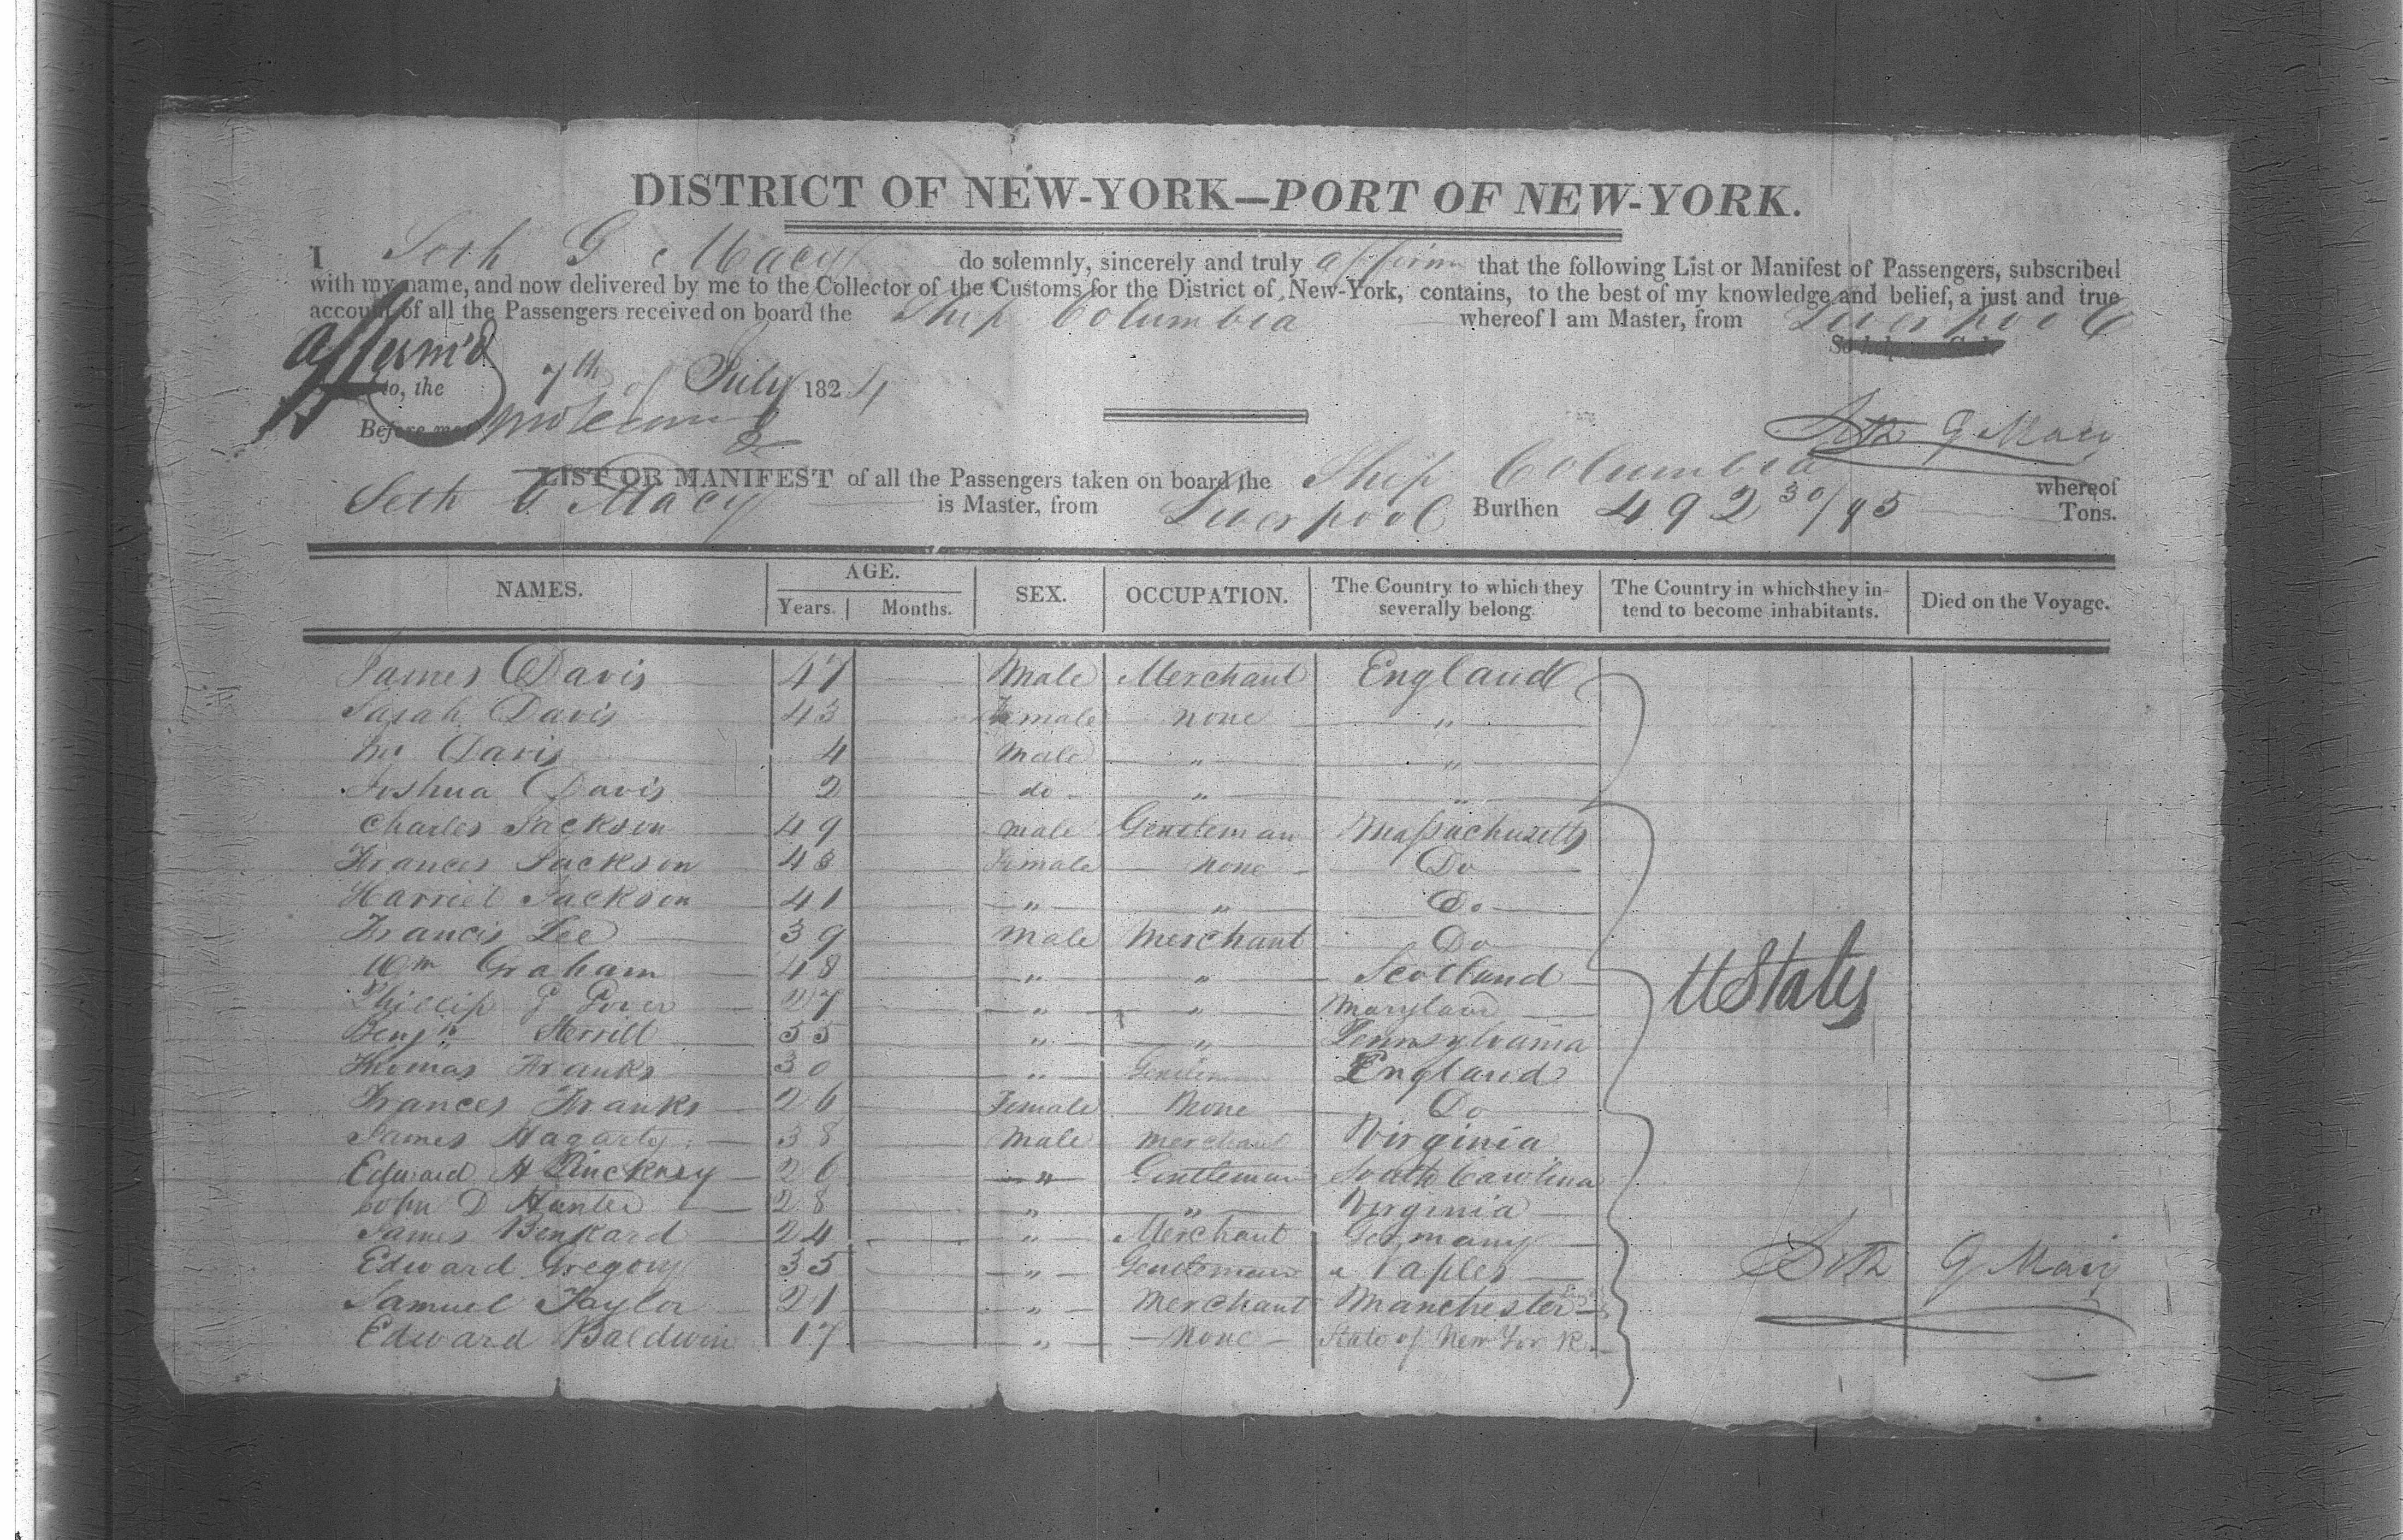 DISTRICT OF NEW-YORK—PORT OF NEW-YORK.
I Seth G Macy do solemnly, sincerely and truly affirm that the following List or Manifest of Passengers, subscribed
with my name, and now delivered by me to the Collector of the Customs for the District of New-York, contains, to the best of my knowledge and belief, a just and true
account of all the Passengers received on board the Ship Columbia whereof I am Master, from Liverpool
So help me God.
affirm'd
to, the 7th of July 1824
Before me
Seth G Macy
LIST OR MANIFEST of all the Passengers taken on board the Ship Columbia whereof
Seth G Macy is Master, from Liverpool Burthen 492 30/95 Tons.
NAMES. AGE. Years. Months. SEX. OCCUPATION. The Country to which they severally belong. The Country in which they intend to become inhabitants. Died on the Voyage.
James Davis 47 Male Merchant England
Sarah Davis 43 Female none "
Davis 4 Male " "
Joshua Davis 2 do " "
Charles Jackson 49 male Gentleman Massachusetts
Frances Jackson 43 Female none Do
Harriet Jackson 41 " " Do
Francis Lee 39 Male Merchant Do
Wm Graham 48 " " Scotland
Phillip G 27 " " Maryland
Benjn 55 " " Pennsylvania
Thomas Franks 30 " Gentleman England
Frances Franks 26 Female None Do
James Hagarty 38 Male merchant Virginia
Edward H Pinckney 26 " Gentleman South Carolina
John D Hunter 28 " " Virginia
James Benkard 24 " Merchant Germany
Edward Gregory 35 " Gentleman Naples
Samuel Taylor 21 " Merchant Manchester
Edward Baldwin 17 " None State of New York
U States
Seth G Macy